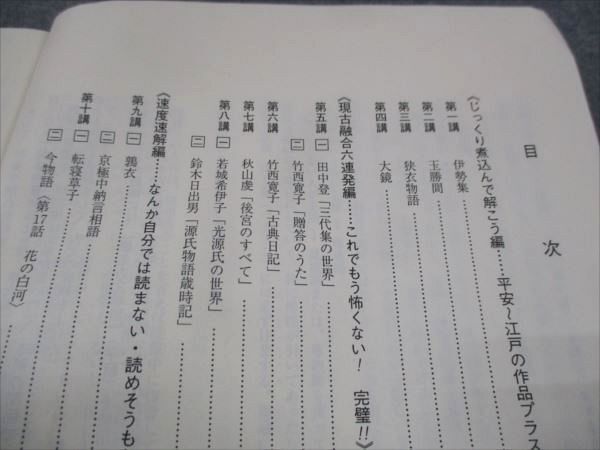 目次
《じっくり煮込んで解こう編……平安〜江戸の作品プラス
第一講 伊勢集
第二講 玉勝間
第三講 狭衣物語
第四講 大鏡
《現古融合六連発編……これでもう怖くない！ 完璧!!》
第五講 一 田中登「三代集の世界」
二 竹西寛子「贈答のうた」
第六講 竹西寛子「古典日記」
第七講 秋山虔「後宮のすべて」
第八講 一 若城希伊子「光源氏の世界」
二 鈴木日出男「源氏物語歳時記」
《速度速解編……なんか自分では読まない・読めそうも
第九講 一 鶉衣
二 京極中納言相語
第十講 一 転寝草子
二 今物語〈第17話 花の白河〉